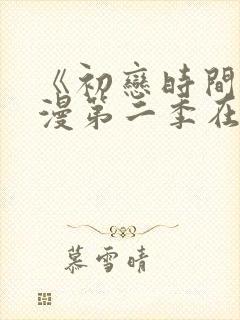 《初戀時間
漫第二季在
慕雪晴